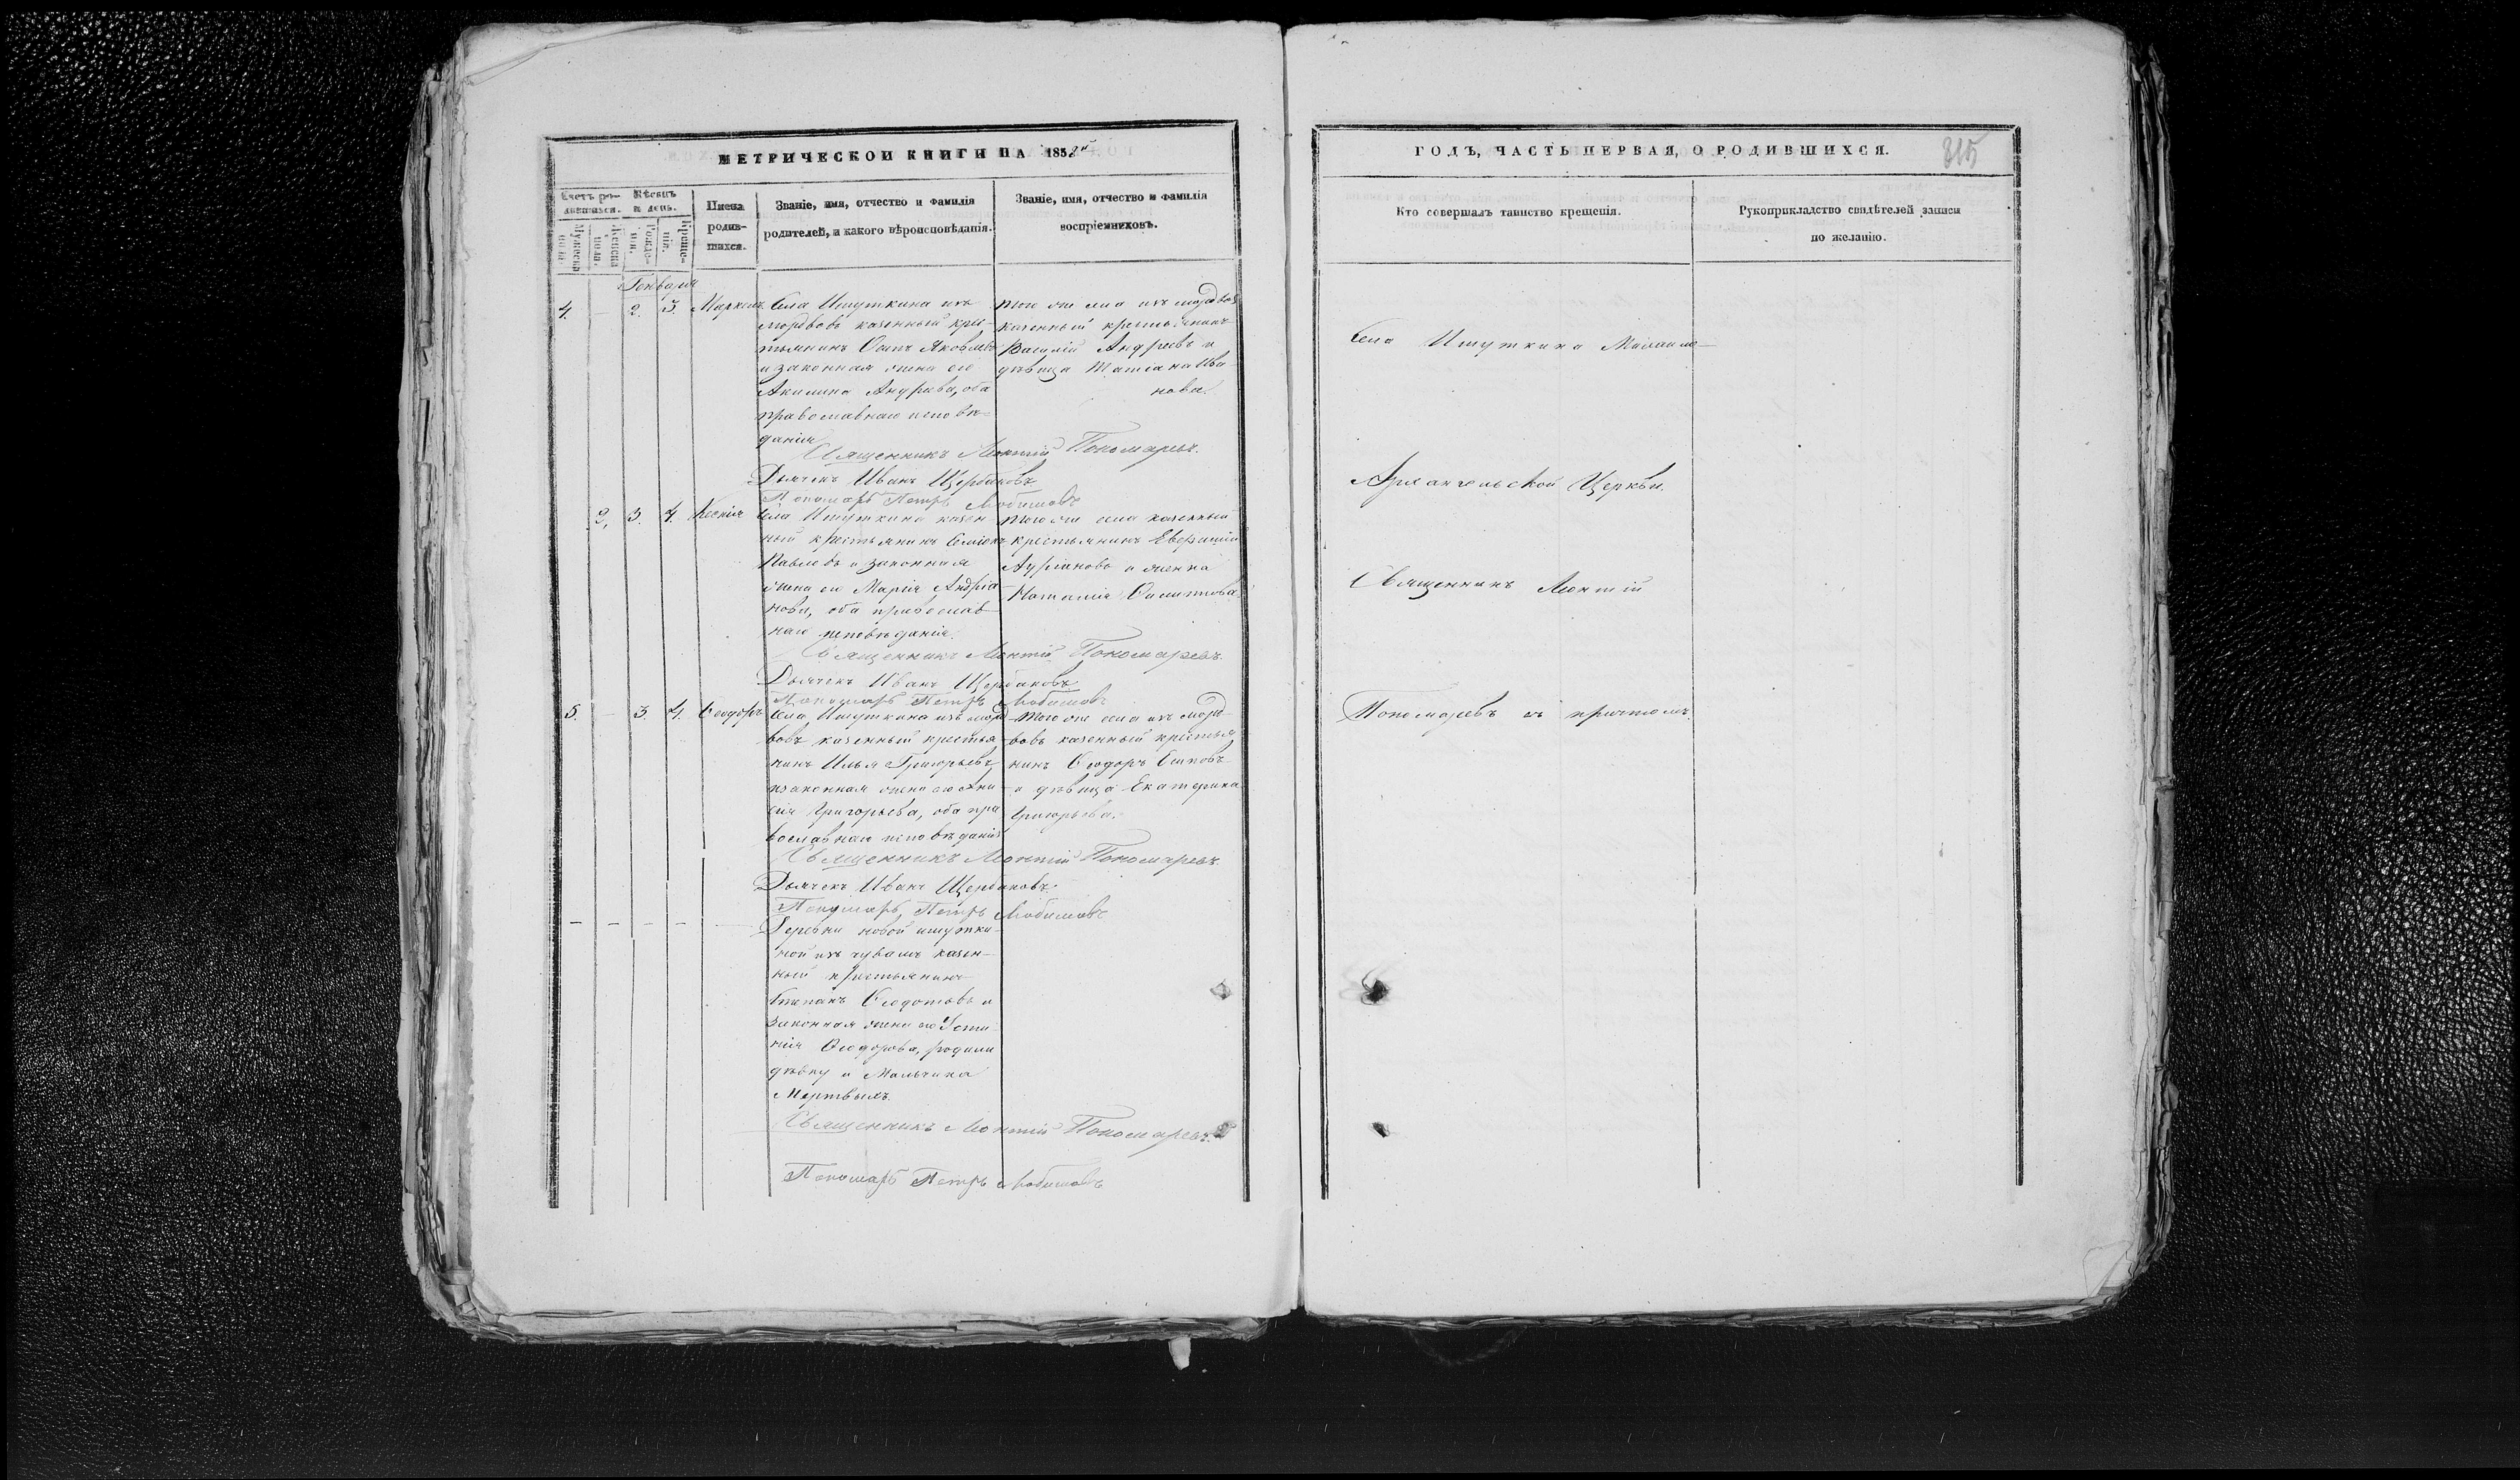 МЕТРИЧЕСКОЙ КНИГИ НА 1852й
Счетъ ро-
дившихся.
Мѣсяцъ
и день.
Имена
родив-
шихся.
Званіе, имя, отчество и фамилія
родителей, и какого вѣроисповѣданія.
Званіе, имя, отчество и фамилія
воспріемниковъ.
Мужеска
пола.
Женска
пола.
Рожде-
нія.
Креще-
нія.
Генваря
4. — 2. 3. Маркелъ
Села Ишуткина изъ
мордвовъ казенный кре-
стьянинъ Осипъ Яковлевъ
и законная жена его
Акилина Андреева, оба
православнаго исповѣ-
данія
того же села изъ мордвовъ
казенный крестьянинъ
Василій Андреевъ и
дѣвица Татіана Ива-
нова.
Священникъ Леонтій Пономаревъ.
Дьячекъ Иванъ Щербаковъ
Пономарь Петръ Любимовъ
2, 3. 4. Ксенія
Села Ишуткина казен-
ный крестьянинъ Симеонъ
Павловъ и законная
жена его Марія Андріа-
нова, оба православ-
наго исповѣданія.
того же села казенный
крестьянинъ
и женка
Наталія
Священникъ Леонтій Пономаревъ.
Дьячекъ Иванъ Щербаковъ
Пономарь Петръ Любимовъ
5. — 3. 4. Ѳеодоръ
Села Ишуткина изъ морд-
вовъ казенный крестья-
нинъ Илья Григорьевъ
и законная жена его Ани-
сія Григорьева, оба пра-
вославнаго исповѣданія
того же села изъ морд-
вовъ казенный крестья-
нинъ Ѳеодоръ Осиповъ
и дѣвица Екатерина
Григорьева.
Священникъ Леонтій Пономаревъ.
Дьячекъ Иванъ Щербаковъ.
Пономарь Петръ Любимовъ
Деревни новой ишутки-
ной изъ чувашъ казен-
ный крестьянинъ
Степанъ Ѳеодотовъ и
законная жена его Усти-
нія Ѳеодорова, родили
дѣвку и Мальчика
Мертвыхъ.
Священникъ Леонтій Пономаревъ.
Пономарь Петръ Любимовъ
ГОДЪ, ЧАСТЬ ПЕРВАЯ, О РОДИВШИХСЯ.
315
Кто совершалъ таинство крещенія.
Рукоприкладство свидѣтелей записи
по желанію.
Села Ишуткина Михаило-
Архангельской Церкви.
Священникъ Леонтій
Пономаревъ съ причтомъ.